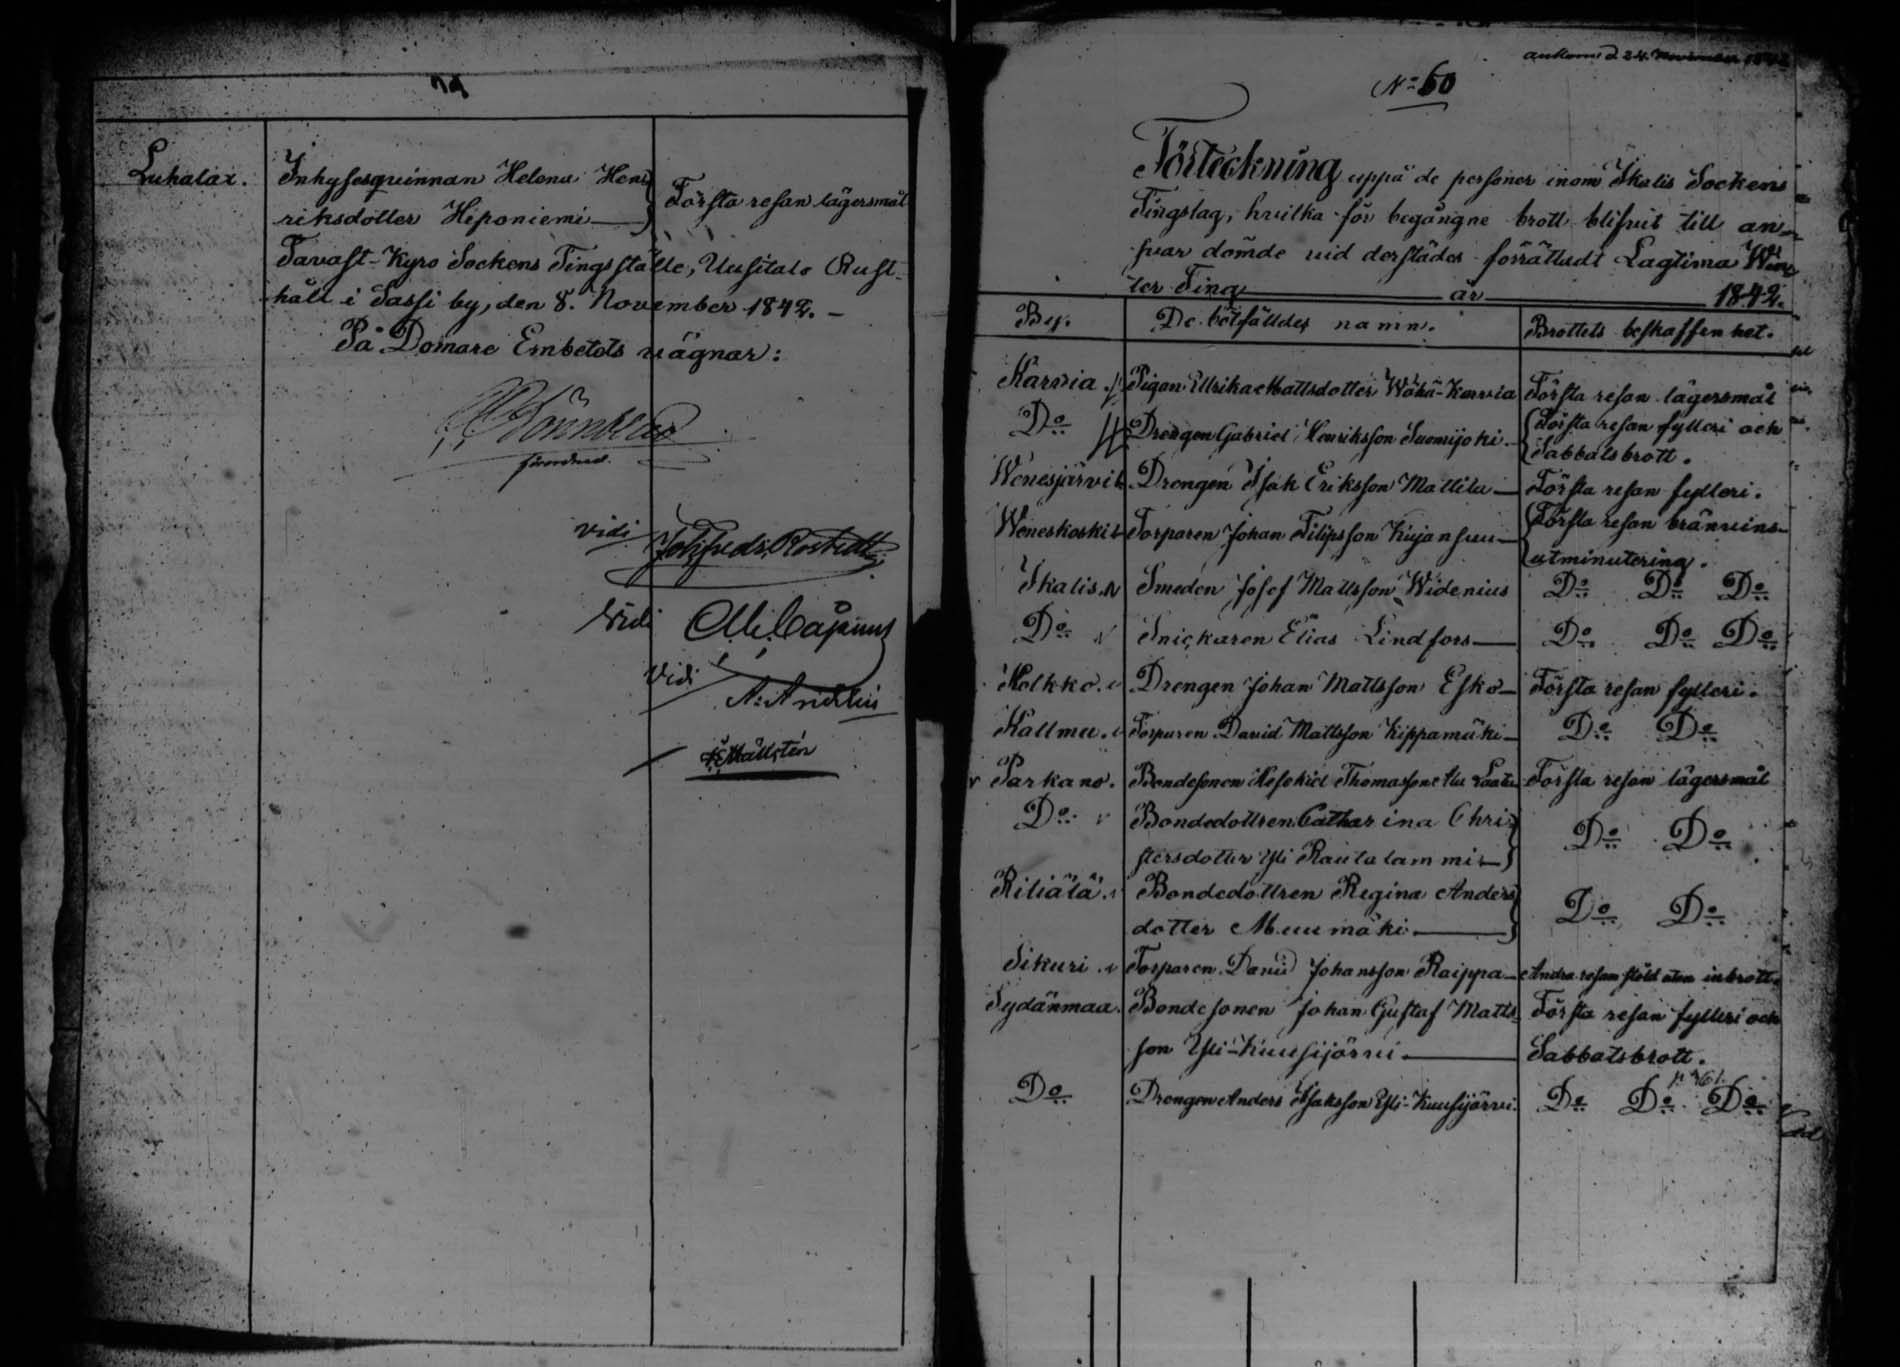 Luhalax. Inhysesquinnan Helena Hen-
riksdotter Heponiemi Första resan lägersmål
Tavast-Kyro Sockens Tingsställe, Uusitalo Rust-
håll i Sassi by, den 8. November 1842. –
På Domare Embetets vägnar:
förordnad.
Vidi
Vidi
Vidi
ankom d. 24 November 1842
No 60
Förteckning uppå de personer inom Ikalis Sockens
Tingslag, hvilka för begångne brott blifvit till an-
svar dömde vid derstädes förrättadt Lagtima Win-
ter Ting år 1842.
By. De bötfälldes namn. Brottets beskaffenhet.
Karvia. Pigan Ullrika Mattsdotter Wähä-Karvia Första resan lägersmål
Do Drengen Gabriel Henriksson Suomijoki Första resan fylleri och
Sabbatsbrott.
Wenesjärvi Drengen Isak Eriksson Mattila Första resan fylleri.
Weneskoski Torparen Johan Filipsson Kujansuu Första resan bränvins-
utminutering.
Ikalis. Smeden Josef Mattsson Widenius Do Do Do
Do Snickaren Elias Lindfors Do Do Do
Kolkko. Drengen Johan Mattsson Esko Första resan fylleri.
Kallmu. Torparen David Mattsson Kippamäki Do Do
Parkano. Bondesonen Hesekiel Thomasson Första resan lägersmål
Do Bondedottren Catharina Chri-
stersdotter Yli Rautalammi Do Do
Riliälä. Bondedottren Regina Anders
dotter Muumäki Do Do
Sikuri. Torparen David Johansson Raippa Andra resan stöld utan inbrott.
Sydänmaa. Bondesonen Johan Gustaf Matts-
son Yli-Kuusijärvi Första resan fylleri och
Sabbatsbrott.
Do Drengen Anders Isaksson Yli-Kuusijärvi. Do Do Do